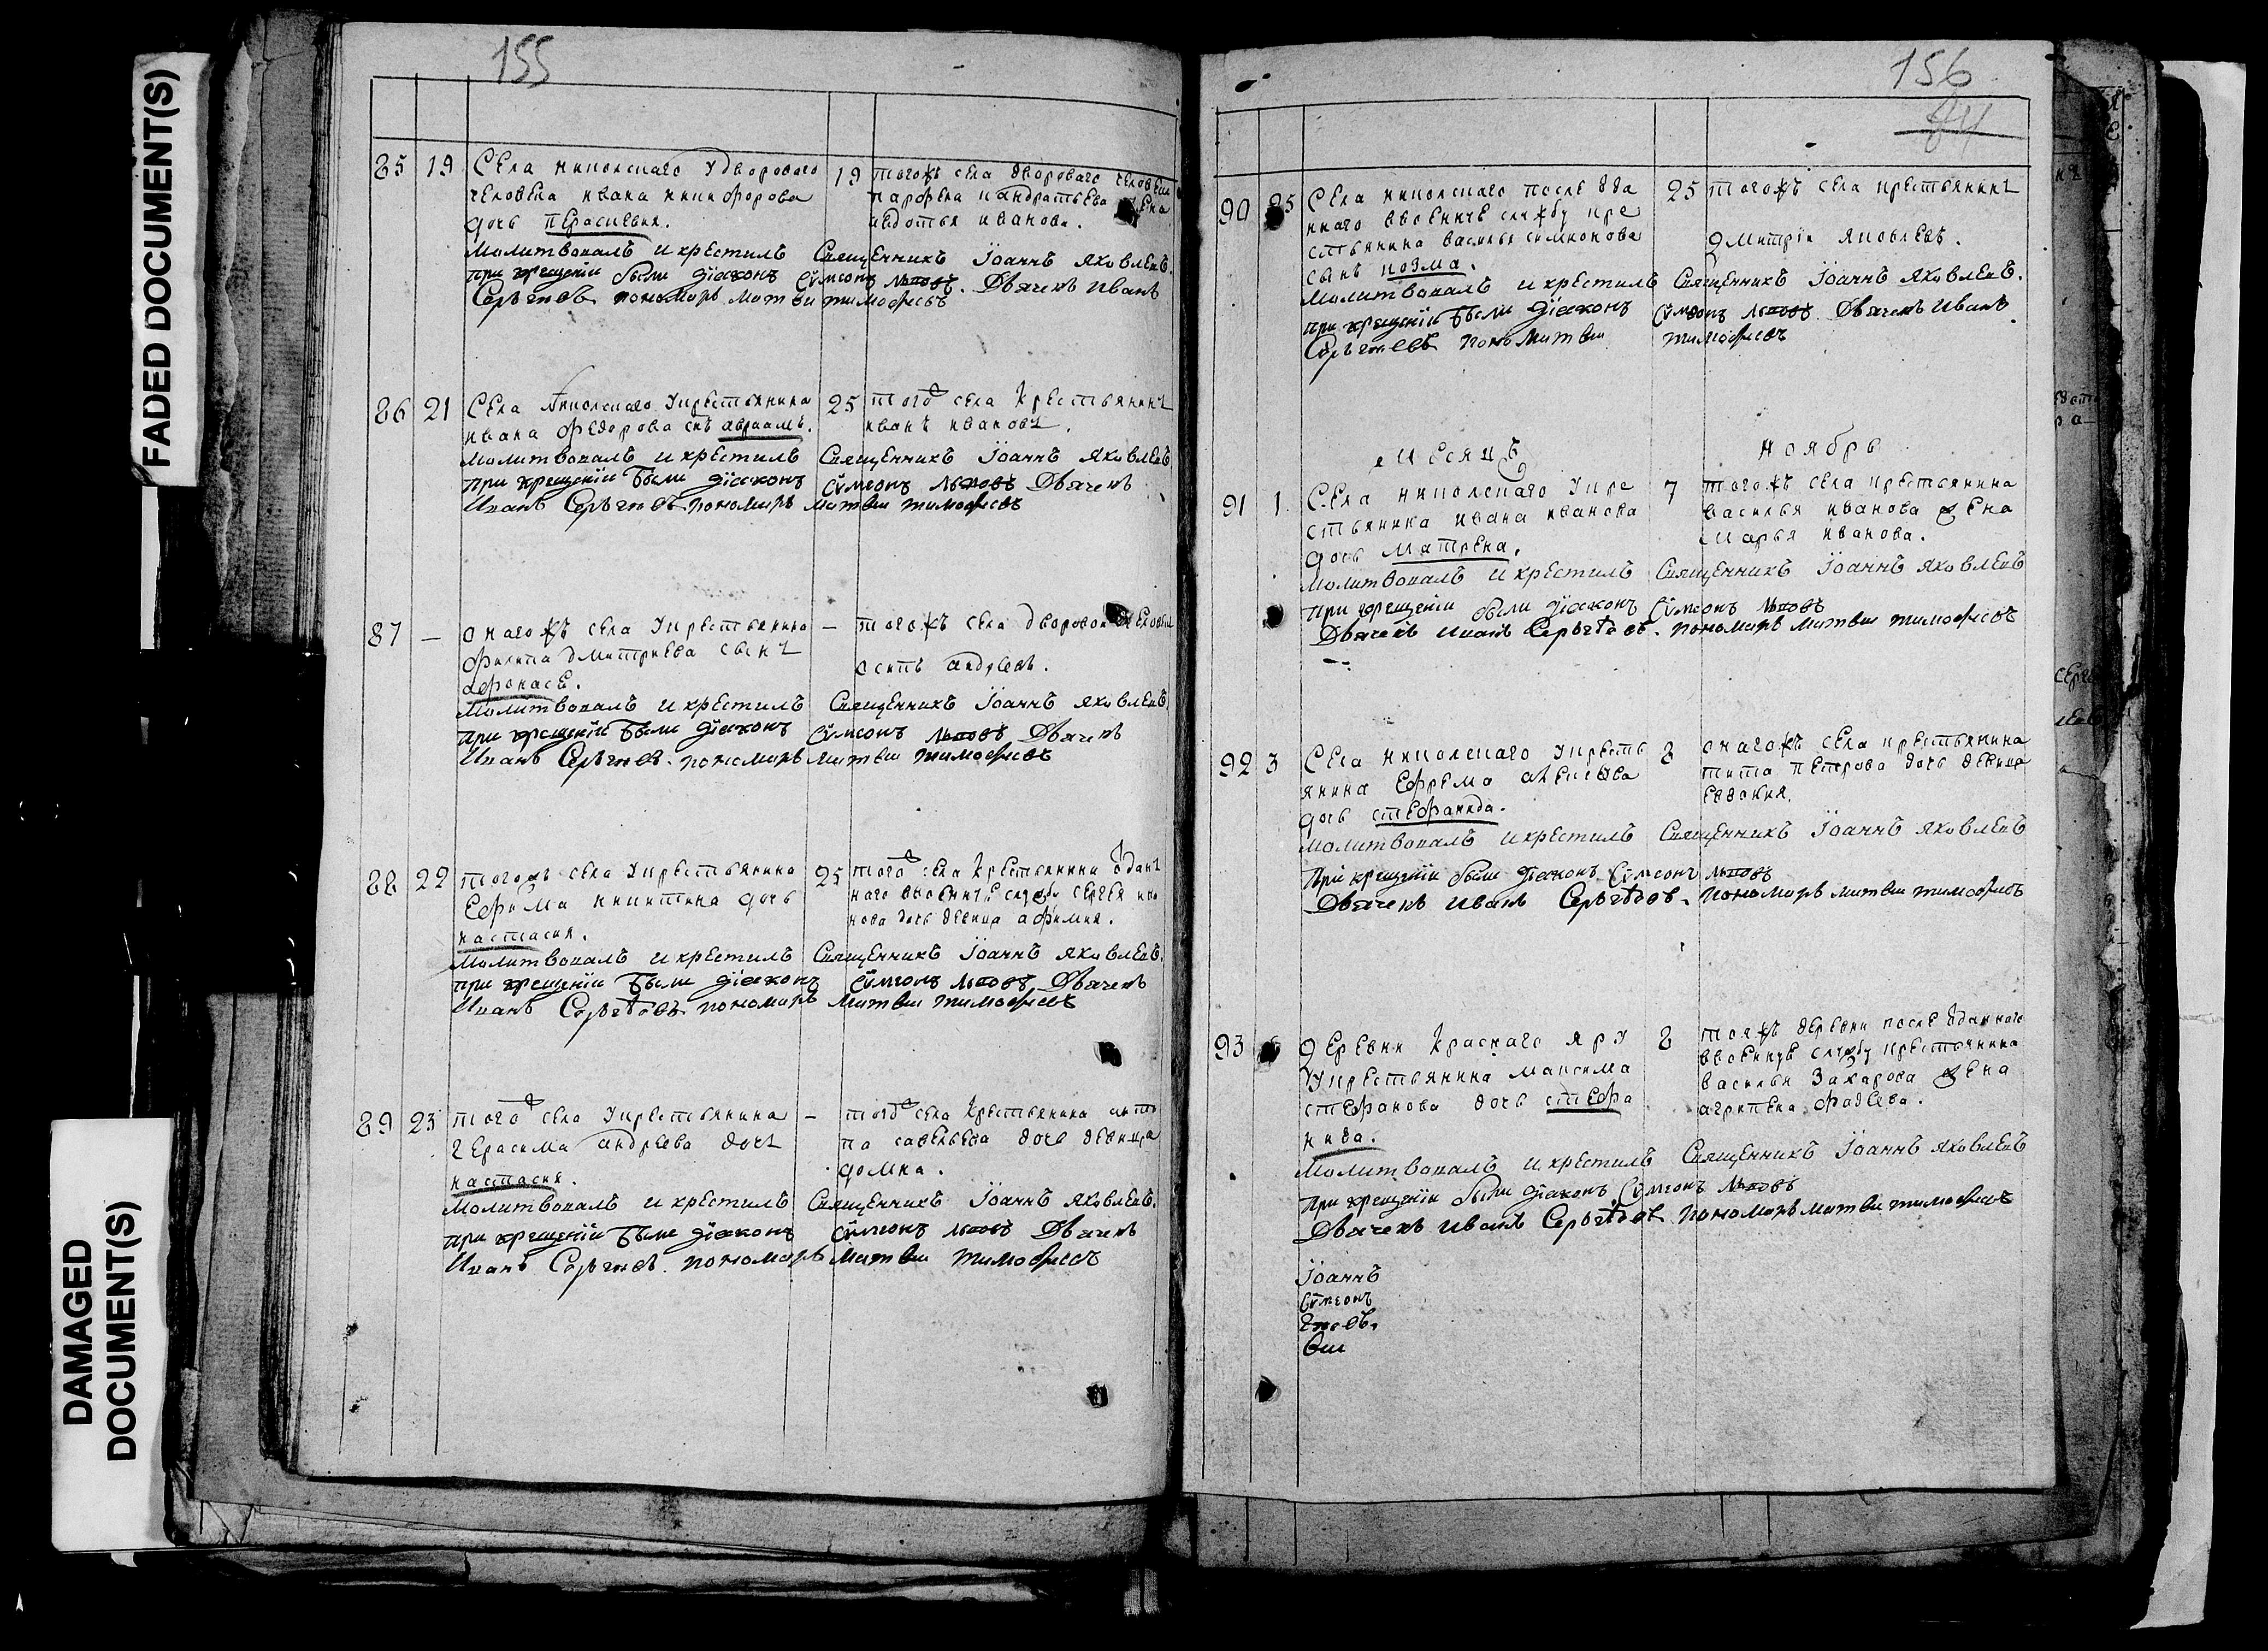 FADED DOCUMENT(S)
DAMAGED
DOCUMENT(S)
155
85 19 Села никольскаго у двороваго
человека ивана никифорова
дочь перасковья.
19 тогожъ села двороваго человека
парфена кандратьева жена
авдотья иванова.
Молитвовалъ и крестилъ Священникъ Іоаннъ Яковлевъ.
при крещеніи были діаконъ Сѵмеонъ Дьячекъ Иванъ
Сергѣевъ пономарь матвеи тимофеевъ
86 21 Села Никольскаго у крестьянина
ивана федорова снъ авраамъ.
25 того села крестьянинъ
иванъ ивановъ.
Молитвовалъ и крестилъ Священникъ Іоаннъ Яковлевъ
при крещеніи были діаконъ Сѵмеонъ Дьячекъ
Иванъ Сергѣевъ пономарь матвеи тимофеевъ
87 — онагожъ села у крестьянина
филипа дмитриева сынъ
афонасе.
— тогожъ села дворовои человекъ
осипъ андреевъ.
Молитвовалъ и крестилъ Священникъ Іоаннъ Яковлевъ.
при крещеніи были діаконъ Сѵмеонъ Дьячекъ
Иванъ Сергѣевъ. пономарь матвеи тимофеевъ
88 22 тогожъ села у крестьянина
Ефима никитина дочь
настасия.
25 того села крестьянина одан
наго ввоенную службу Сергея ива
нова дочь девица афимия.
Молитвовалъ и крестилъ Священникъ Іоаннъ Яковлевъ.
при крещеніи были діаконъ Сѵмеонъ Дьячекъ
Иванъ Сергѣевъ пономарь матвеи тимофеевъ
89 23 того села у крестьянина
Герасима андреева дочь
настасия.
— того села крестьянина анти
па савельева дочь девица
домна.
Молитвовалъ и крестилъ Священникъ Іоаннъ Яковлевъ.
при крещеніи были діаконъ Сѵмеонъ Дьячекъ
Иванъ Сергѣевъ. пономарь матвеи тимофеевъ
156
84
90 25 Села никольскаго после вда
ннаго ввоенную службу кре
стьянина василья симионова
сынъ козма.
25 тогожъ села крестьянинъ
дмитрїи яковлевъ.
Молитвовалъ и крестилъ Священникъ Іоаннъ Яковлевъ.
при крещеніи были діаконъ Сѵмеонъ Дьячекъ Иванъ
Сергѣевъ поно матвеи тимофеевъ
Месяцъ ноябрь
91 1 Села никольскаго у кре
стьянина ивана иванова
дочь матрена.
7 тогожъ села крестьянина
василья иванова жена
марья иванова.
Молитвовалъ и крестилъ Священникъ Іоаннъ Яковлевъ
при крещеніи были діаконъ Сѵмеонъ
Дьячекъ Иванъ Сергѣевъ. пономарь матвеи тимофеевъ
92 3 Села никольскаго у кресть
янина Ефрема алексѣва
дочь стефанида.
8 онагожъ села крестьянина
тита петрова дочь девица
евдокия.
Молитвовалъ и крестилъ Священникъ Іоаннъ Яковлевъ
при крещеніи были діаконъ Сѵмеонъ
Дьячекъ Иванъ Сергѣевъ. пономарь матвеи тимофеевъ
93 Деревни Краснаго яру
у крестьянина максима
стефанова дочь стефа
нида.
8 тояжъ деревни после вданнаго
ввоенную службу крестьянина
василья Захарова жена
агрипена фадеева.
Молитвовалъ и крестилъ Священникъ Іоаннъ Яковлевъ
при крещеніи были діаконъ Сѵмеонъ
Дьячекъ Иванъ Сергѣевъ пономарь матвеи тимофеевъ
Іоаннъ
Сѵмеонъ
гѣевъ.
веи